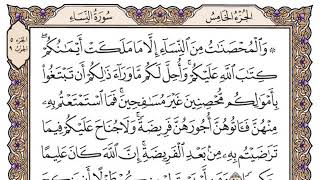 الجزء الخامس
سورة النساء
۞ والمحصنات من النساء إلا ما ملكت أيمانكم
كتاب الله عليكم وأحل لكم ما وراء ذلكم أن تبتغوا
بأموالكم محصنين غير مسافحين فما استمتعتم به
منهن فآتوهن أجورهن فريضة ولا جناح عليكم فيما
تراضيتم به من بعد الفريضة إن الله كان عليما